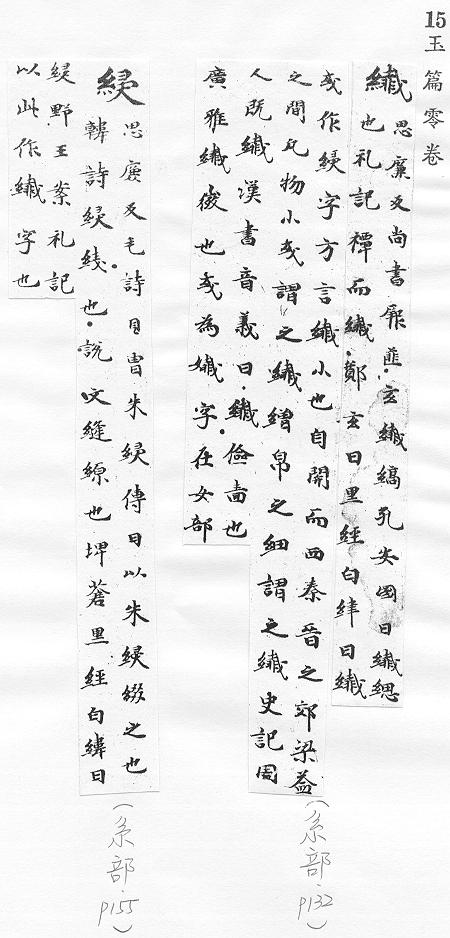 15玉篇零卷
纎思廉反尚書厥篚玄纎縞孔安囯曰纎緦
也礼記禫而纎鄭玄曰黒經白緯曰纎
或作綅字方言纎小也自開而西秦晉之郊梁益
之間凡物小或謂之纎繒帛之細謂之纎史記周
人既纎漢書音義曰纎儉嗇也
廣雅纎微也或為孅字在女部
(糸部·p132)
綅思廉反毛詩貝冑朱綅傳曰以朱綅綴之也
韓詩綅綫也說文縫線也埤蒼黒經白緯曰
綅野王案礼記
以此作纎字也
(糸部·p155)